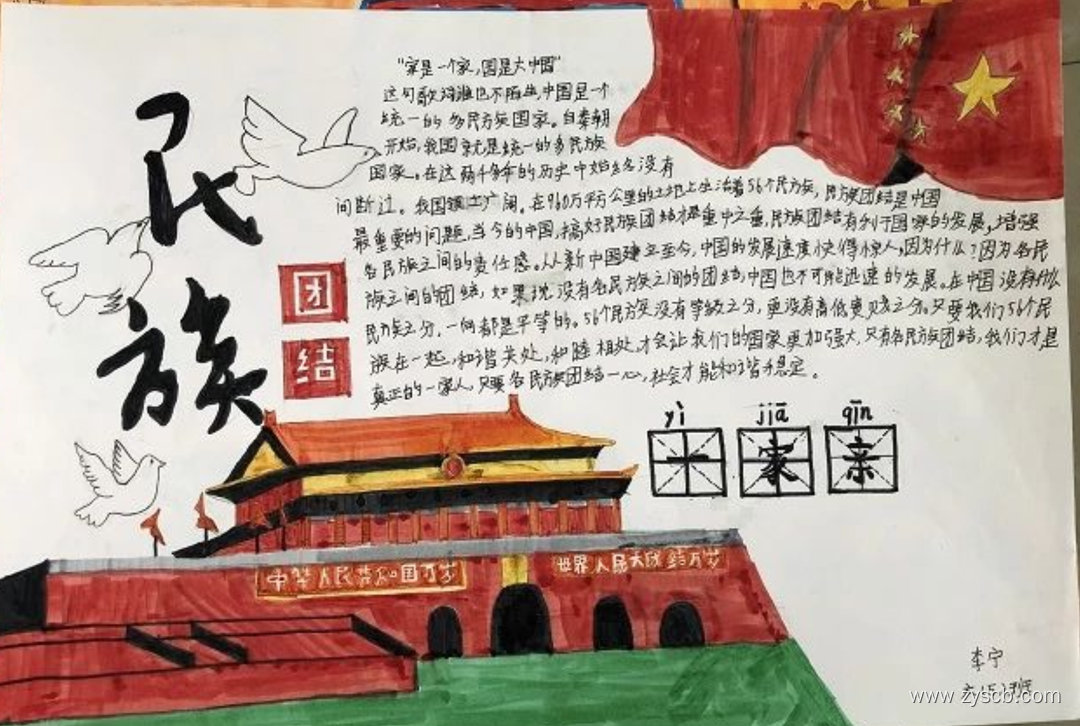 民族
团
结
"家是一个家,国是大中国"
这句歌词谁也不陌生,中国是一个
统一的多民族国家。自秦朝
开始,我国就是统一的多民族
国家。在这两千多年的历史中始终没有
间断过。我国领土广阔。在960万平方公里的土地上生活着56个民族,民族团结是中国
最重要的问题,当今的中国,搞好民族团结才是重中之重,民族团结有利于国家的发展,增强
各民族之间的责任感。从新中国建立至今,中国的发展速度快得惊人,因为什么?因为各民
族之间的团结,如果说没有各民族之间的团结,中国也不可能迅速的发展。在中国没有什么
民族之分,一向都是平等的。56个民族没有等级之分,更没有高低贵贱之分。只要我们56个民
族在一起,和谐共处,和睦相处,才会让我们的国家更加强大,只有各民族团结,我们才是
真正的一家人,只要各民族团结一心,社会才能和谐和稳定。
yì jiā qīn
一家亲
中华人民共和国万岁
世界人民大团结万岁
李宁
www.zyscb.com